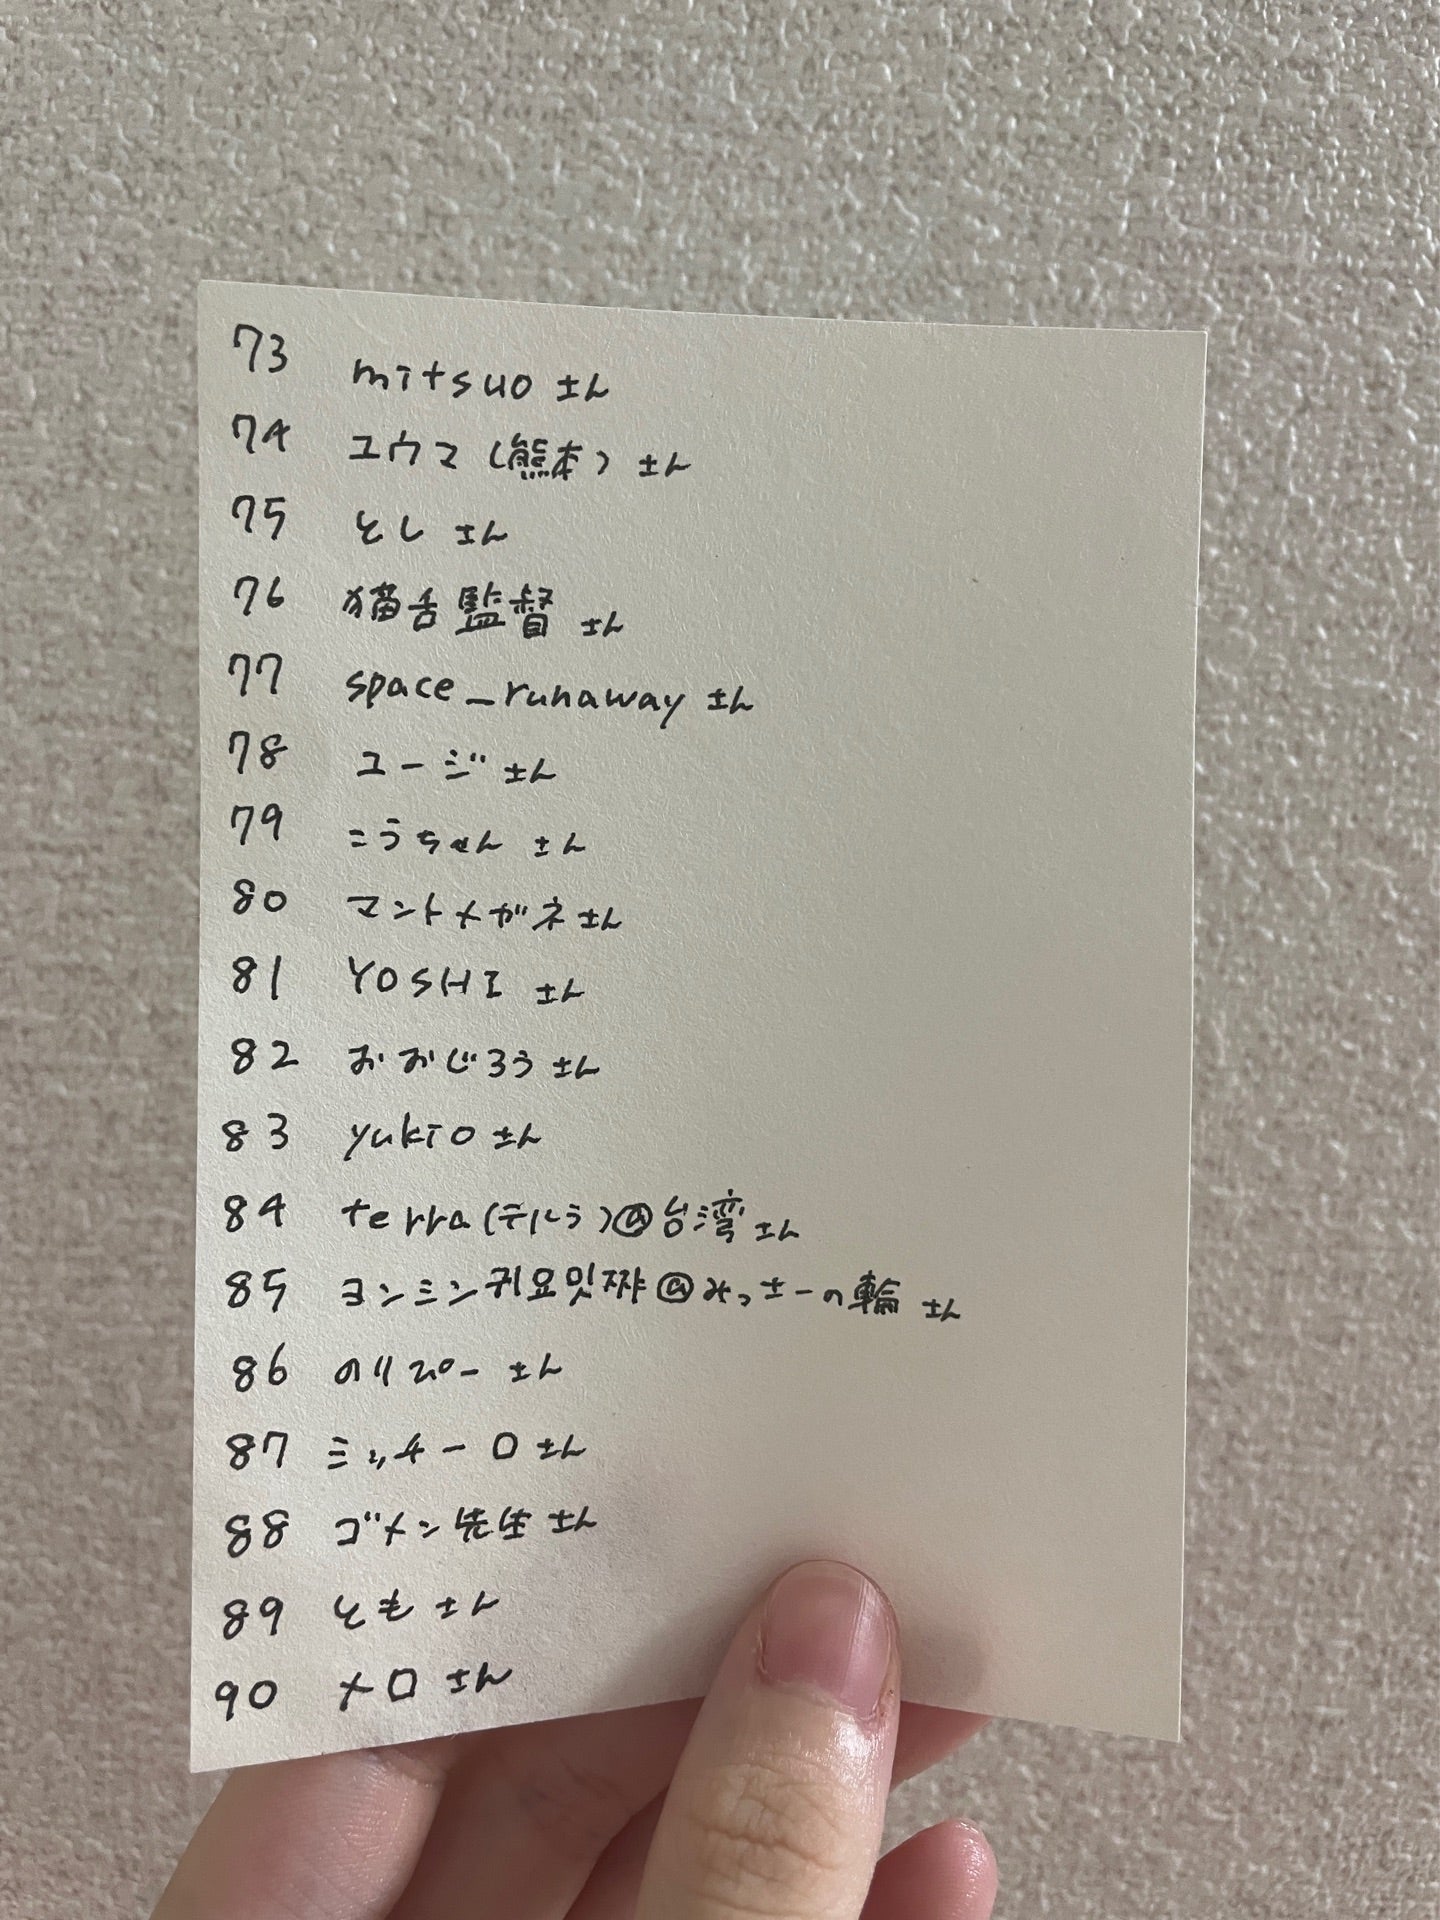 73 mitsuo さん
74 ユウマ (熊本) さん
75 とし さん
76 猫舌監督 さん
77 space_runaway さん
78 ユージ さん
79 こうちゃん さん
80 マントメガネ さん
81 YOSHI さん
82 おおじろう さん
83 yukio さん
84 terra(テルラ)@台湾 さん
85 ヨンミン귀요밋쨔@みっさーの輪 さん
86 のりぴー さん
87 ミッチーロ さん
88 ゴメン先生 さん
89 とも さん
90 メロ さん